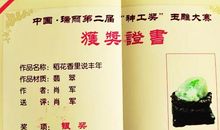 中国·瑞丽第二届“神工奖”玉雕大赛
獲獎證書
作品名称：稻花香里说丰年
材质：翡翠
作者：肖军
送评：肖军
奖项：银奖